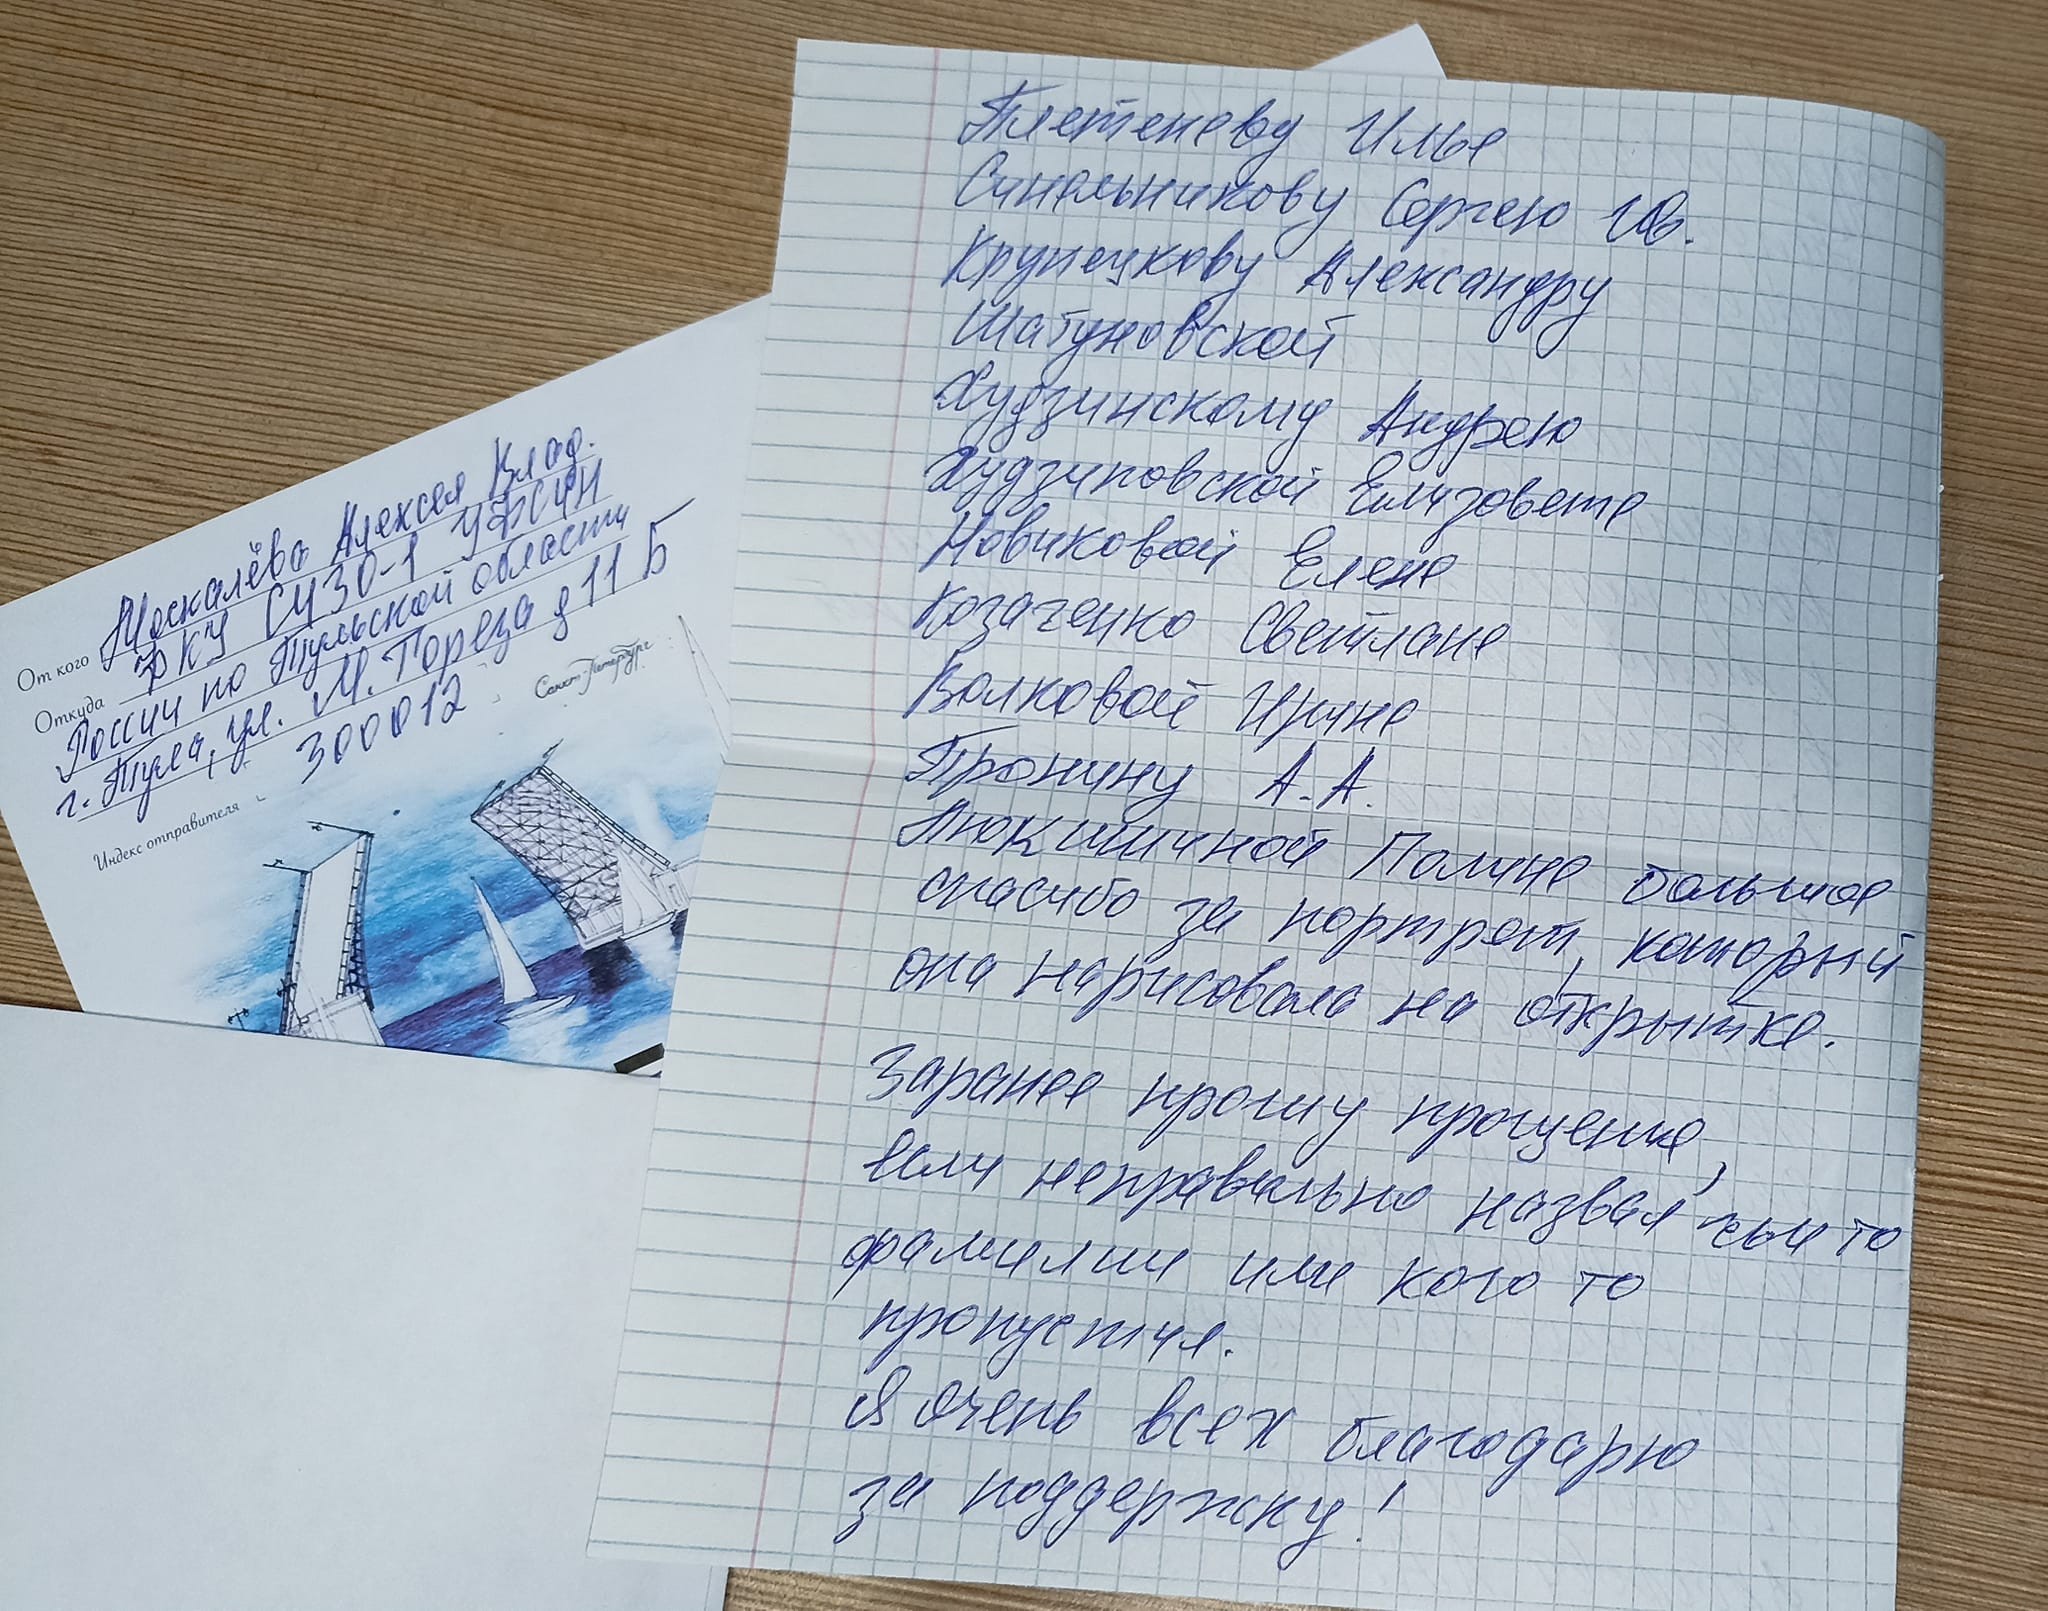 От кого Москалёва Алексея Влад.
Откуда ФКУ СИЗО-1 УФСИН
России по Тульской области
г. Тула, ул. М. Тореза д 11 Б
Индекс отправителя 300012
Санкт-Петербург
Плетеневу Илье
Синельникову Сергею Ив.
Крупецкову Александру
Шатуновской
Худзинскому Андрею
Худзиповской Елизавете
Новиковой Елене
Козаченко Светлане
Волковой Ирине
Пронину А.А.
Полине большое
спасибо за портрет, который
она нарисовала на открытке.
Заранее прошу прощение,
если неправильно назвал чьи то
фамилии или кого то
пропустил.
Я очень всех благодарю
за поддержку!